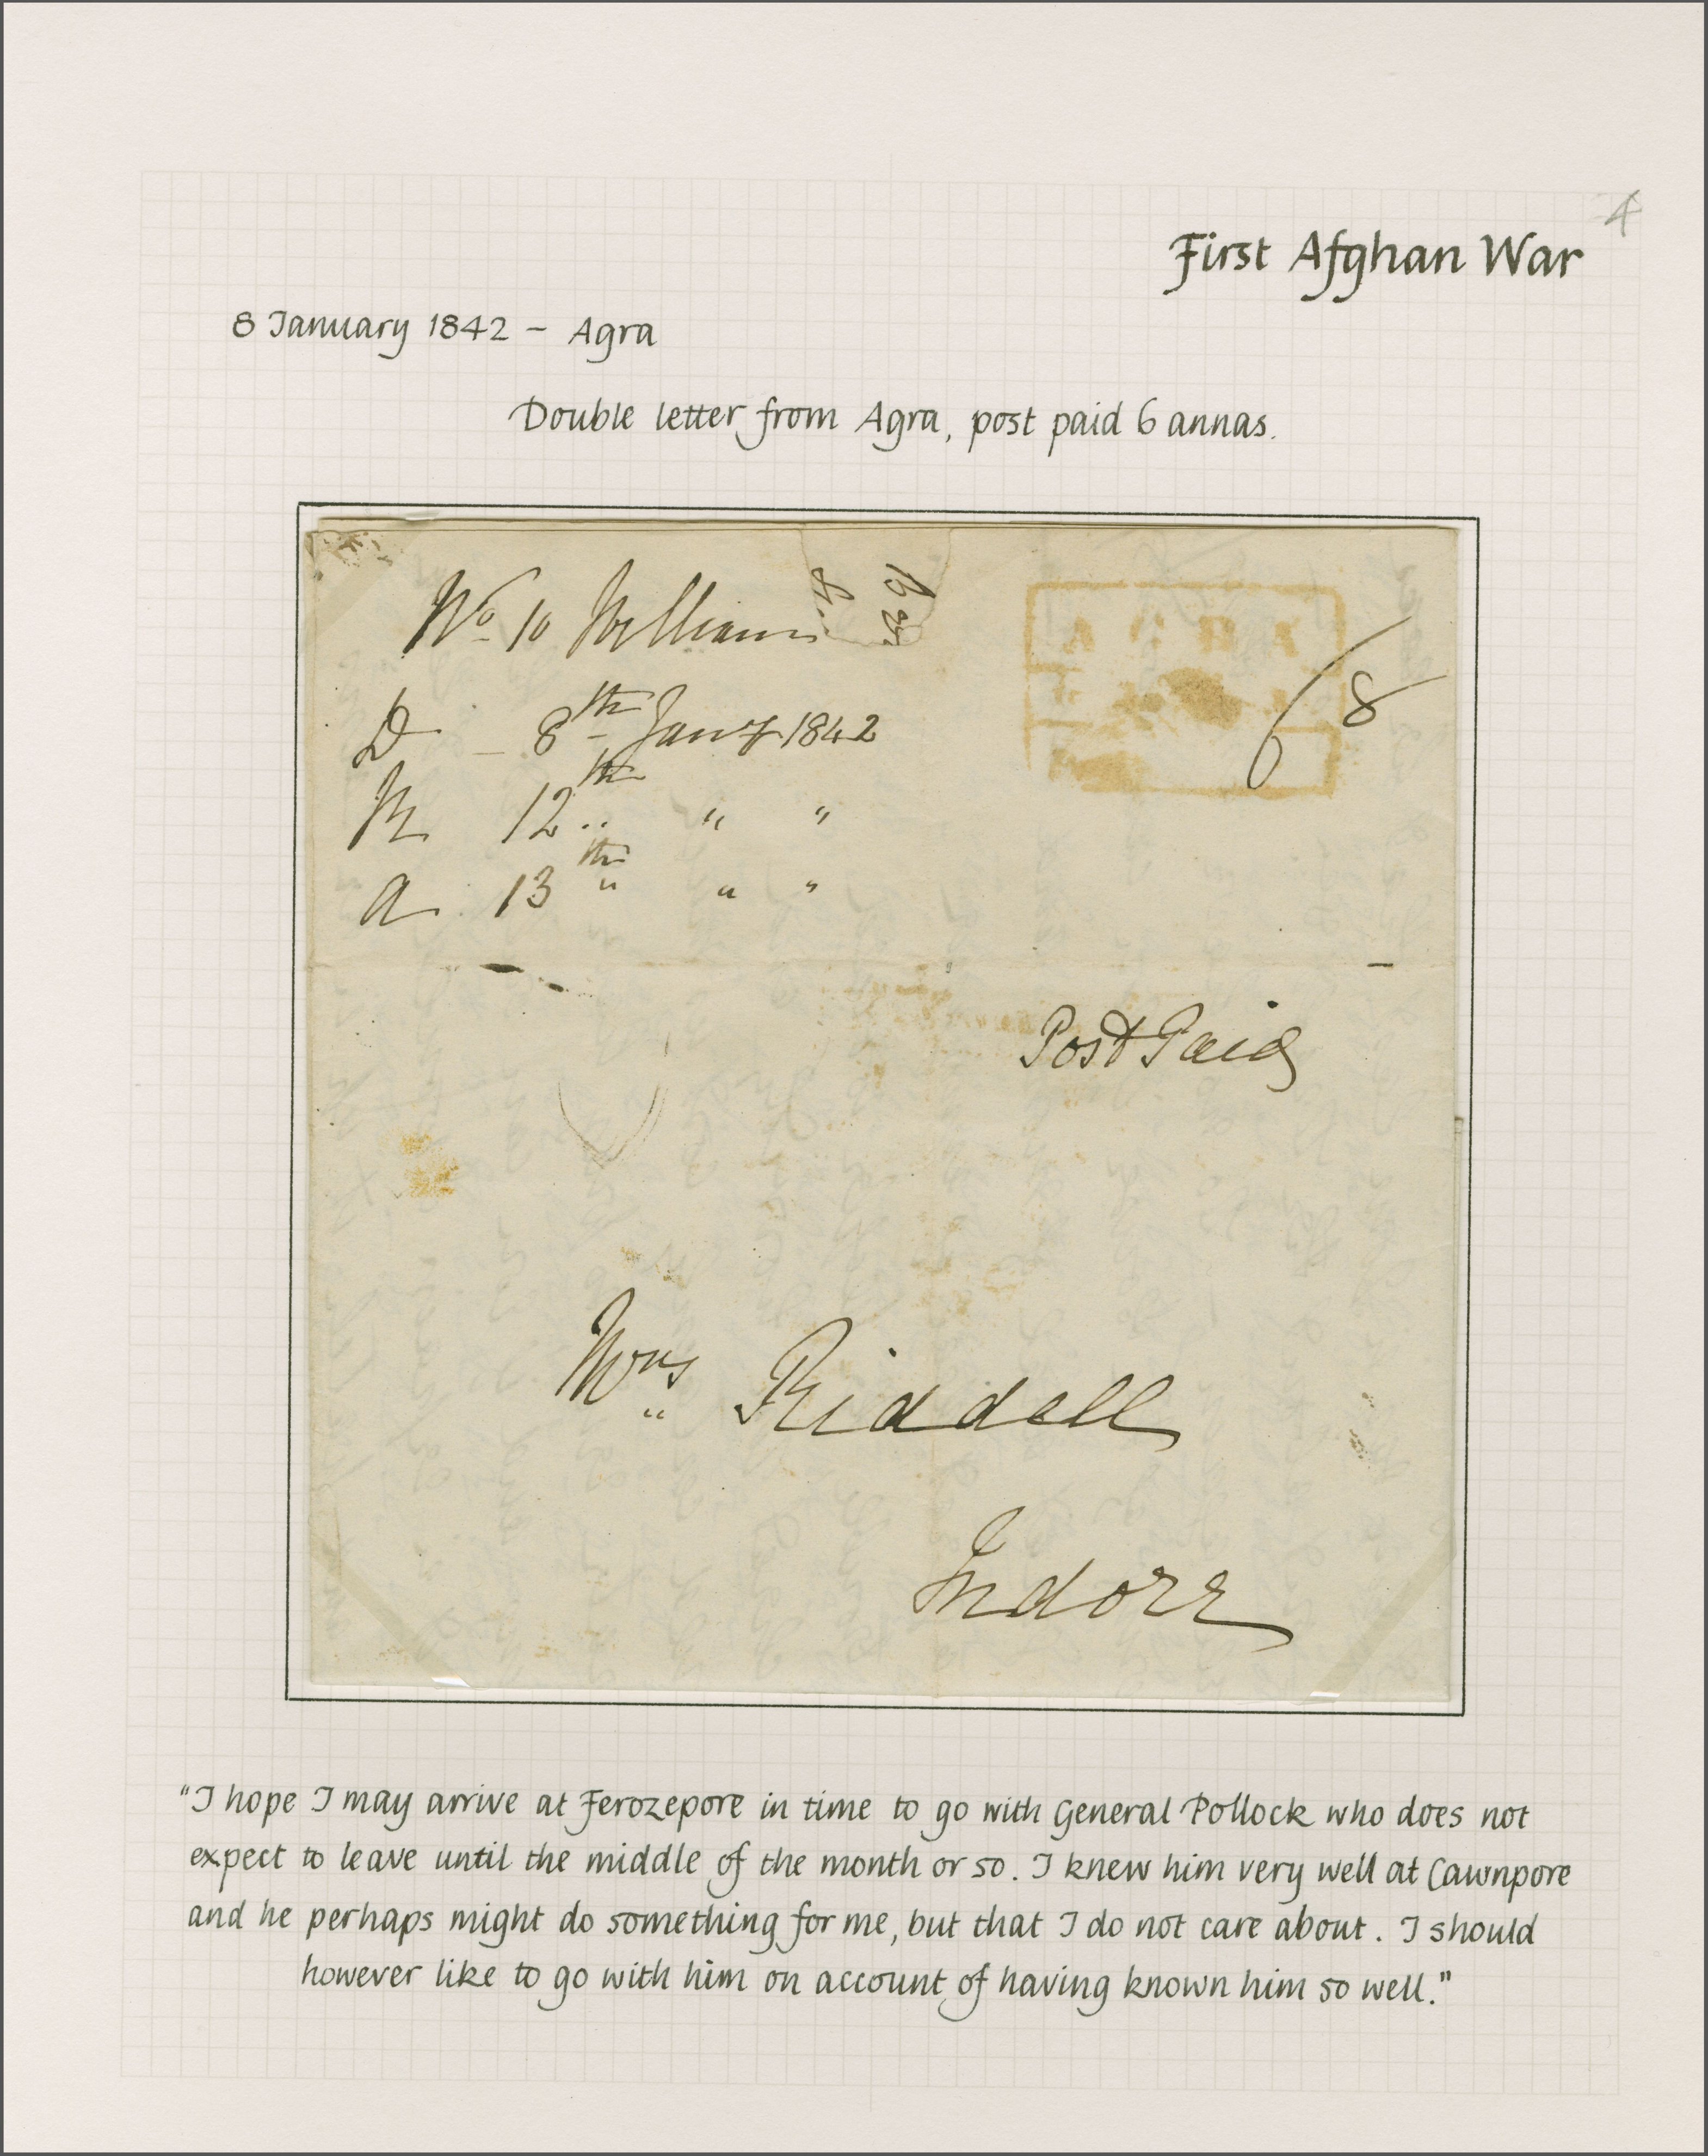 4
First Afghan War
8 January 1842 – Agra
Double letter from Agra, post paid 6 annas.
No 10 William
AGRA
6/8
D – 8th Jany 1842
R 12th " "
a 13th " "
Post Paid
Mrs Riddell
Indore
"I hope I may arrive at Ferozepore in time to go with General Pollock who does not
expect to leave until the middle of the month or so. I knew him very well at Cawnpore
and he perhaps might do something for me, but that I do not care about. I should
however like to go with him on account of having known him so well."